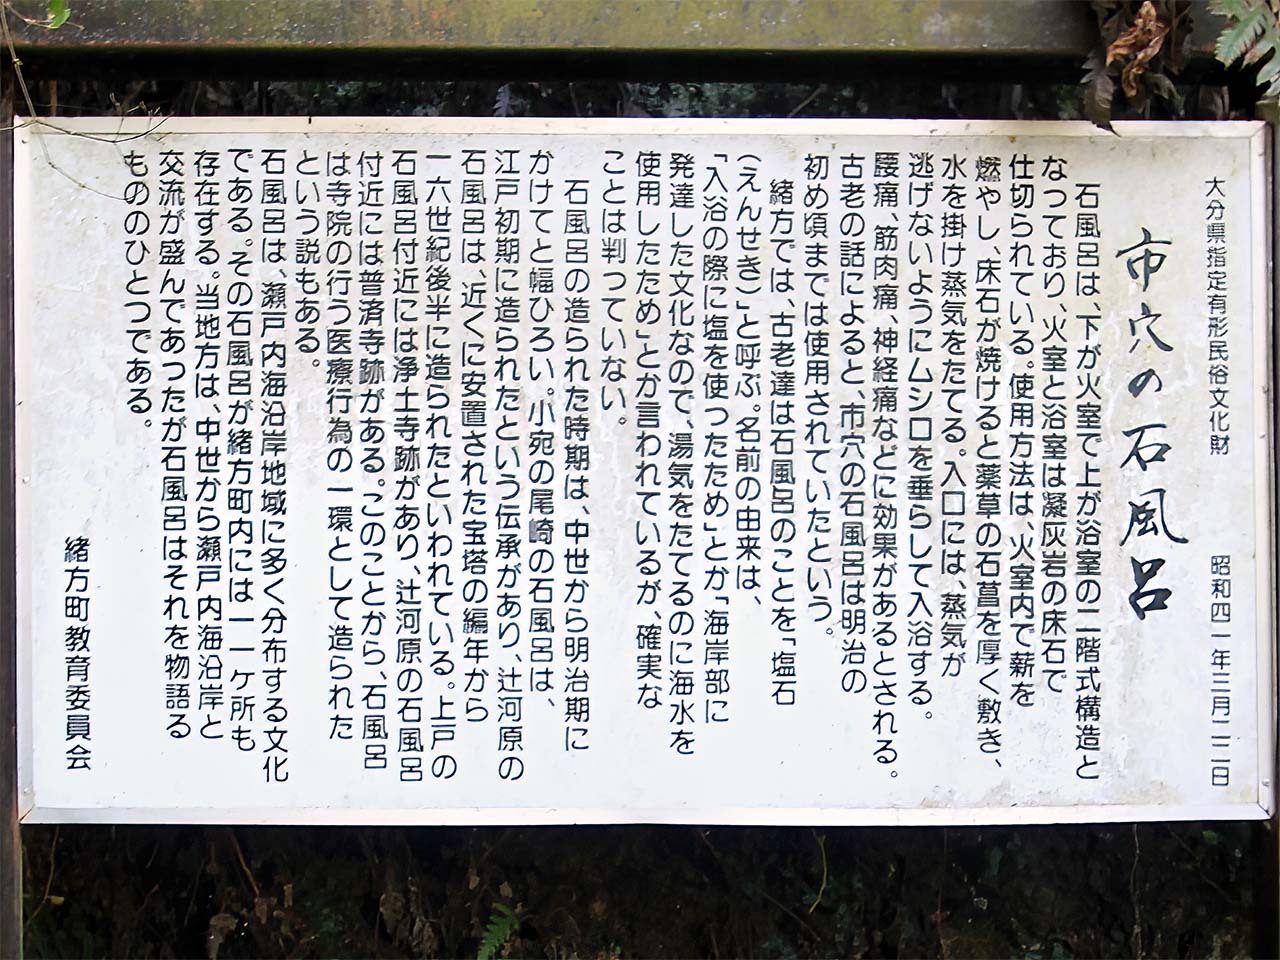 大分県指定有形民俗文化財　昭和四一年三月二二日
市穴の石風呂
石風呂は、下が火室で上が浴室の二階式構造と
なっており、火室と浴室は凝灰岩の床石で
仕切られている。使用方法は、火室内で薪を
燃やし、床石が焼けると薬草の石菖を厚く敷き、
水を掛け蒸気をたてる。入口には、蒸気が
逃げないようにムシロを垂らして入浴する。
腰痛、筋肉痛、神経痛などに効果があるとされる。
古老の話によると、市穴の石風呂は明治の
初め頃までは使用されていたという。
緒方では、古老達は石風呂のことを「塩石
（えんせき）」と呼ぶ。名前の由来は、
「入浴の際に塩を使ったため」とか「海岸部に
発達した文化なので、湯気をたてるのに海水を
使用したため」とか言われているが、確実な
ことは判っていない。
石風呂の造られた時期は、中世から明治期に
かけてと幅ひろい。小宛の尾崎の石風呂は、
江戸初期に造られたという伝承があり、辻河原の
石風呂は、近くに安置された宝塔の編年から
一六世紀後半に造られたといわれている。上戸の
石風呂付近には浄土寺跡があり、辻河原の石風呂
付近には普済寺跡がある。このことから、石風呂
は寺院の行う医療行為の一環として造られた
という説もある。
石風呂は、瀬戸内海沿岸地域に多く分布する文化
である。その石風呂が緒方町内には一一ケ所も
存在する。当地方は、中世から瀬戸内海沿岸と
交流が盛んであったが石風呂はそれを物語る
もののひとつである。
緒方町教育委員会